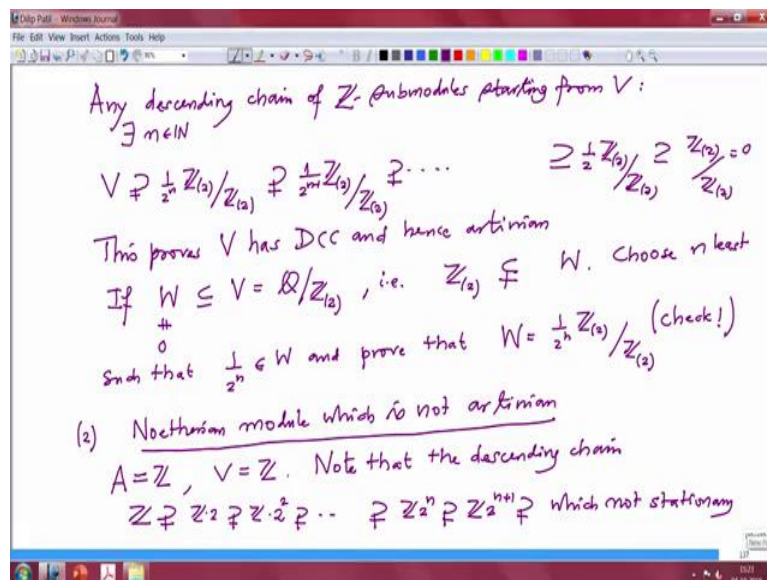 Dilip Patil - Windows Journal
File Edit View Insert Actions Tools Help
Any descending chain of ℤ-submodules starting from V :
∃ n∈ℕ
V ⊋ 1/2ⁿ ℤ₍₂₎/ℤ₍₂₎ ⊋ 1/2ⁿ⁺¹ ℤ₍₂₎/ℤ₍₂₎ ⊋ ···· ⊇ 1/2 ℤ₍₂₎/ℤ₍₂₎ ⊇ ℤ₍₂₎/ℤ₍₂₎ = 0
This proves V has DCC and hence artinian
If 0 ≠ W ⊆ V = ℚ/ℤ₍₂₎ , i.e. ℤ₍₂₎ ⊊ W. Choose n least
such that 1/2ⁿ ∈ W and prove that W = 1/2ⁿ ℤ₍₂₎/ℤ₍₂₎ (check!)
(2) Noetherian module which is not artinian
A = ℤ , V = ℤ . Note that the descending chain
ℤ ⊋ ℤ·2 ⊋ ℤ·2² ⊋ ·· ⊋ ℤ2ⁿ ⊋ ℤ2ⁿ⁺¹ ⊋ which not stationary
137
15:23